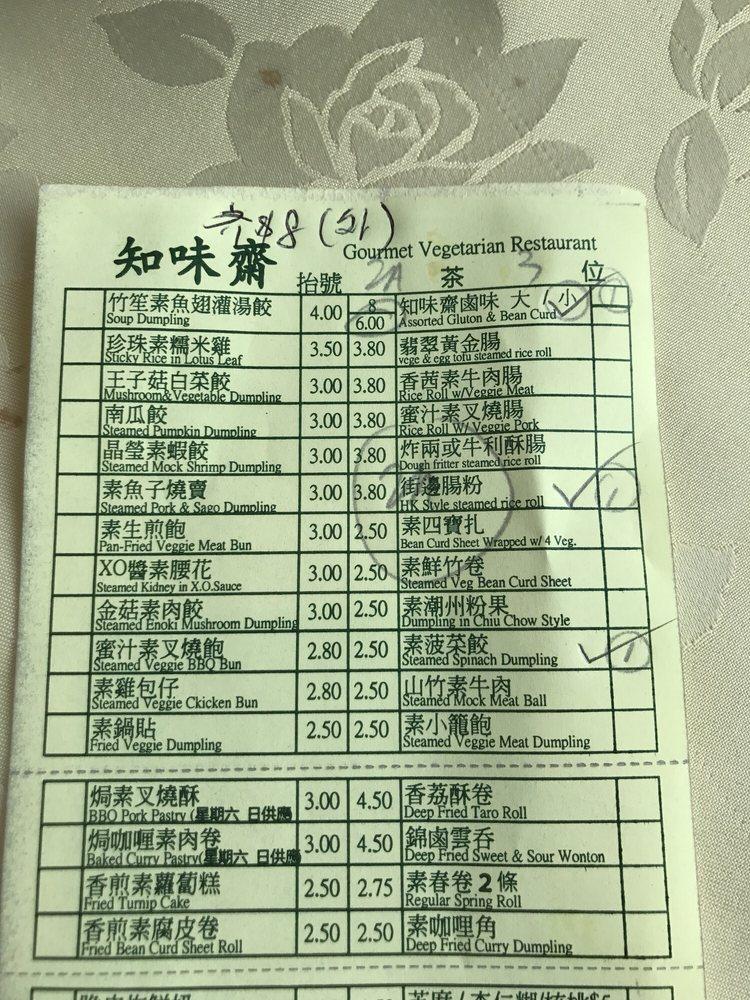 $8 (21)
知味齋 Gourmet Vegetarian Restaurant
抬號 2A 茶 3 位
竹笙素魚翅灌湯餃 4.00 8 知味齋鹵味 大 / 小 1
Soup Dumpling 6.00 Assorted Gluton & Bean Curd
珍珠素糯米雞 3.50 3.80 翡翠黃金腸
Sticky Rice in Lotus Leaf vege & egg tofu steamed rice roll
王子菇白菜餃 3.00 3.80 香茜素牛肉腸
Mushroom&Vegetable Dumpling Rice Roll w/Veggie Meat
南瓜餃 3.00 3.80 蜜汁素叉燒腸
Steamed Pumpkin Dumpling Rice Roll W/ Veggie Pork
晶瑩素蝦餃 3.00 3.80 炸兩或牛利酥腸
Steamed Mock Shrimp Dumpling Dough fritter steamed rice roll
素魚子燒賣 3.00 3.80 街邊腸粉 1
Steamed Pork & Sago Dumpling HK Style steamed rice roll
素生煎飽 3.00 2.50 素四寶扎
Pan-Fried Veggie Meat Bun Bean Curd Sheet Wrapped w/ 4 Veg.
XO醬素腰花 3.00 2.50 素鮮竹卷
Steamed Kidney in X.O.Sauce Steamed Veg Bean Curd Sheet
金菇素肉餃 3.00 2.50 素潮州粉果
Steamed Enoki Mushroom Dumpling Dumpling in Chiu Chow Style
蜜汁素叉燒飽 2.80 2.50 素菠菜餃 1
Steamed Veggie BBQ Bun Steamed Spinach Dumpling
素雞包仔 2.80 2.50 山竹素牛肉
Steamed Veggie Chicken Bun Steamed Mock Meat Ball
素鍋貼 2.50 2.50 素小籠飽
Fried Veggie Dumpling Steamed Veggie Meat Dumpling
焗素叉燒酥 3.00 4.50 香荔酥卷
BBQ Pork Pastry (星期六 日供應 Deep Fried Taro Roll
焗咖喱素肉卷 3.00 4.50 錦鹵雲吞
Baked Curry Pastry(星期六 日供應 Deep Fried Sweet & Sour Wonton
香煎素蘿蔔糕 2.50 2.75 素春卷2條
Fried Turnip Cake Regular Spring Roll
香煎素腐皮卷 2.50 2.50 素咖哩角
Fried Bean Curd Sheet Roll Deep Fried Curry Dumpling